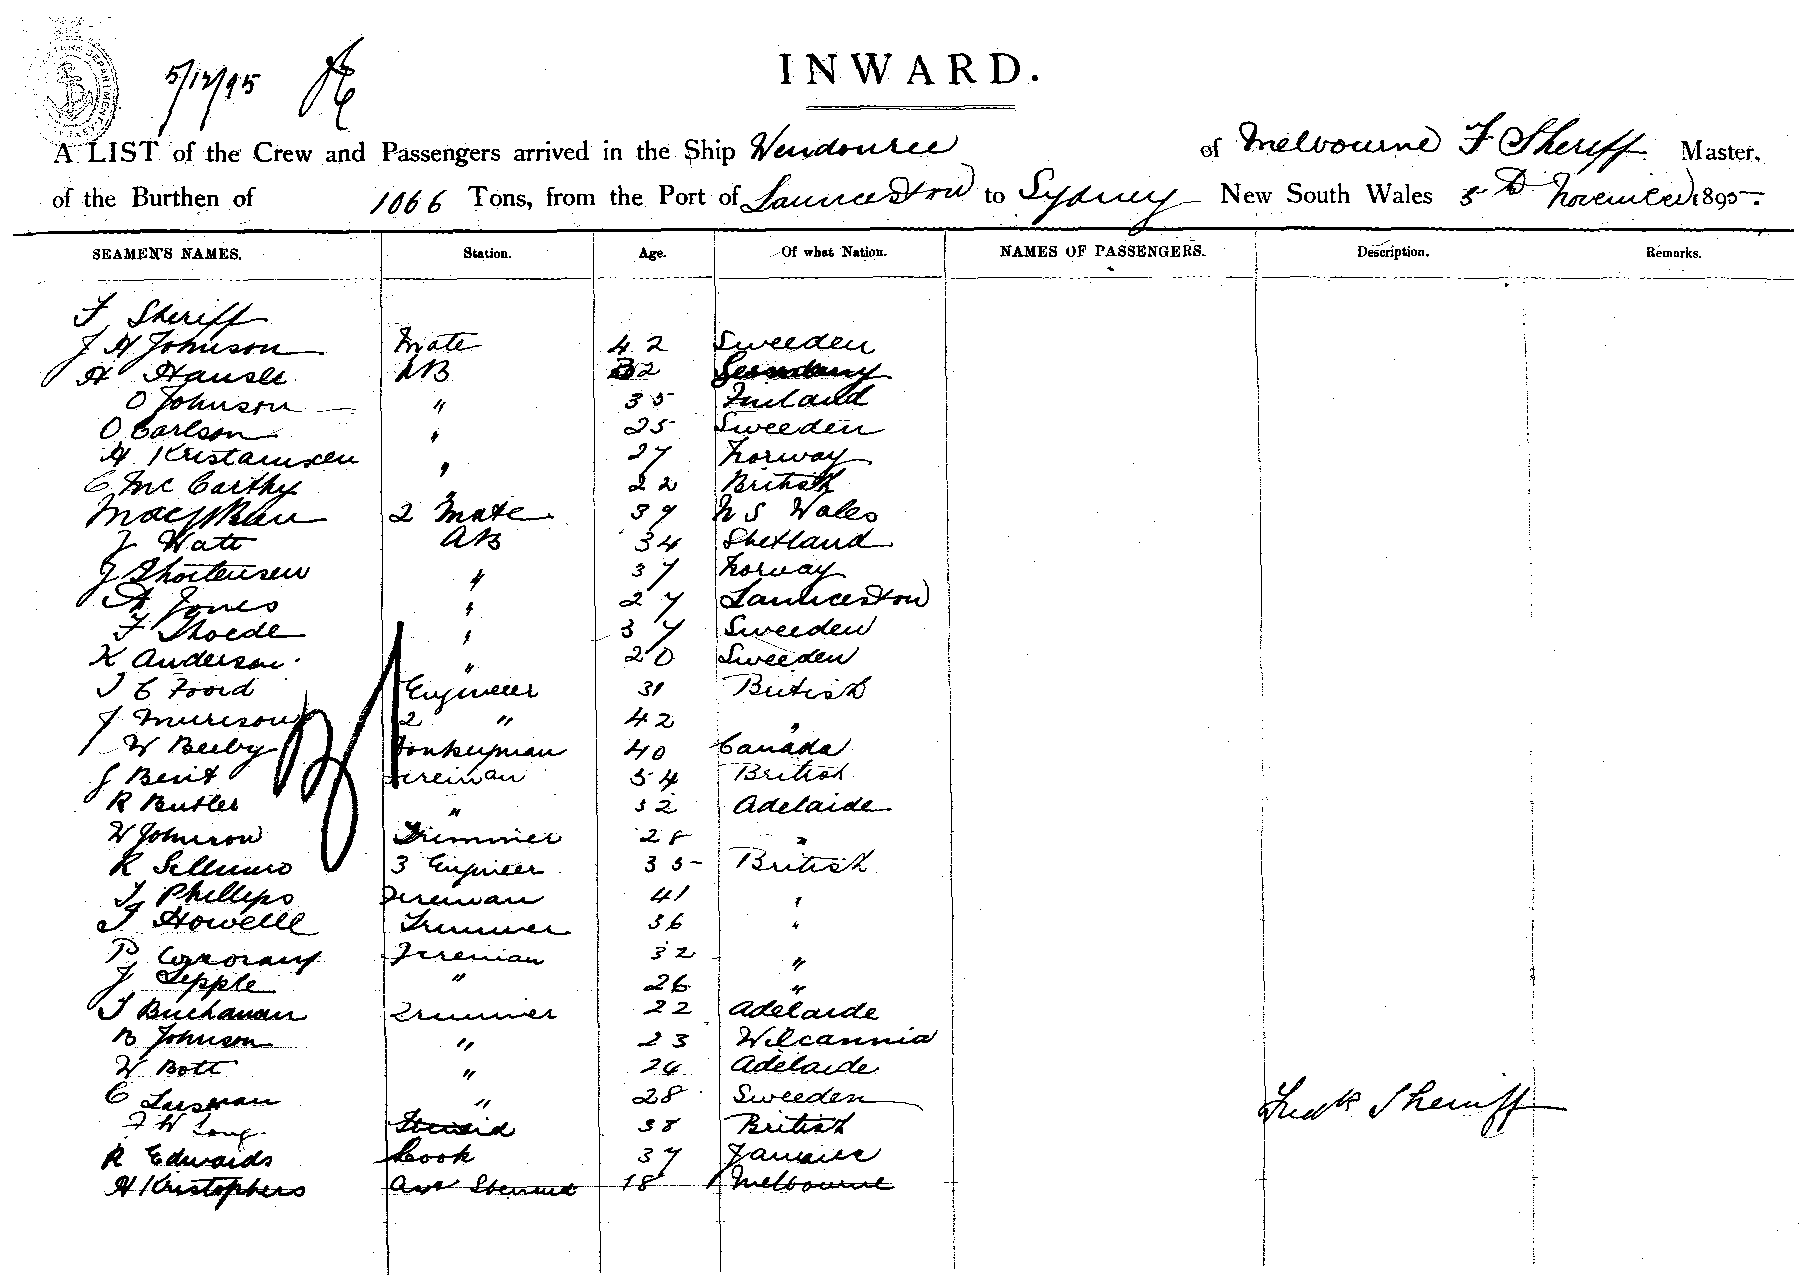 5/12/95
INWARD.
A LIST of the Crew and Passengers arrived in the Ship Wendouree of Melbourne F Sheriff Master,
of the Burthen of 1066 Tons, from the Port of Launceston to Sydney New South Wales 5th November 1895.
SEAMEN'S NAMES. Station. Age. Of what Nation. NAMES OF PASSENGERS. Description. Remarks.
F Sheriff
J H Johnson Mate 42 Sweeden
H 32 Germany
O Johnson " 35 Finland
O Carlson " 25 Sweeden
H " 27 Norway
C McCarthy 22 British
2 Mate 39 N S Wales
J Watt AB 34 Shetland
J Thortensen " 37 Norway
A Jones " 27 Launceston
F Thoede " 37 Sweeden
K Anderson " 20 Sweeden
Foord Engineer 31 British
J Murison 2 " 42 "
W Beeby Donkeyman 40 Canada
J Bent Fireman 54 British
R Butler " 32 Adelaide
W Johnson Trimmer 28 "
R 3 Engineer 35 British
Phillips Fireman 41 "
Howelle Trimmer 36 "
P Corcoran Fireman 32 "
J Lepple " 26 "
Buchanan Trimmer 22 Adelaide
B Johnson " 23 Wilcannia
W Bott " 24 Adelaide
C " 28 Sweeden
F W Long Steward 38 British
R Edwards Cook 37
H Kristophers Steward 18 Melbourne
Fredk Sheriff